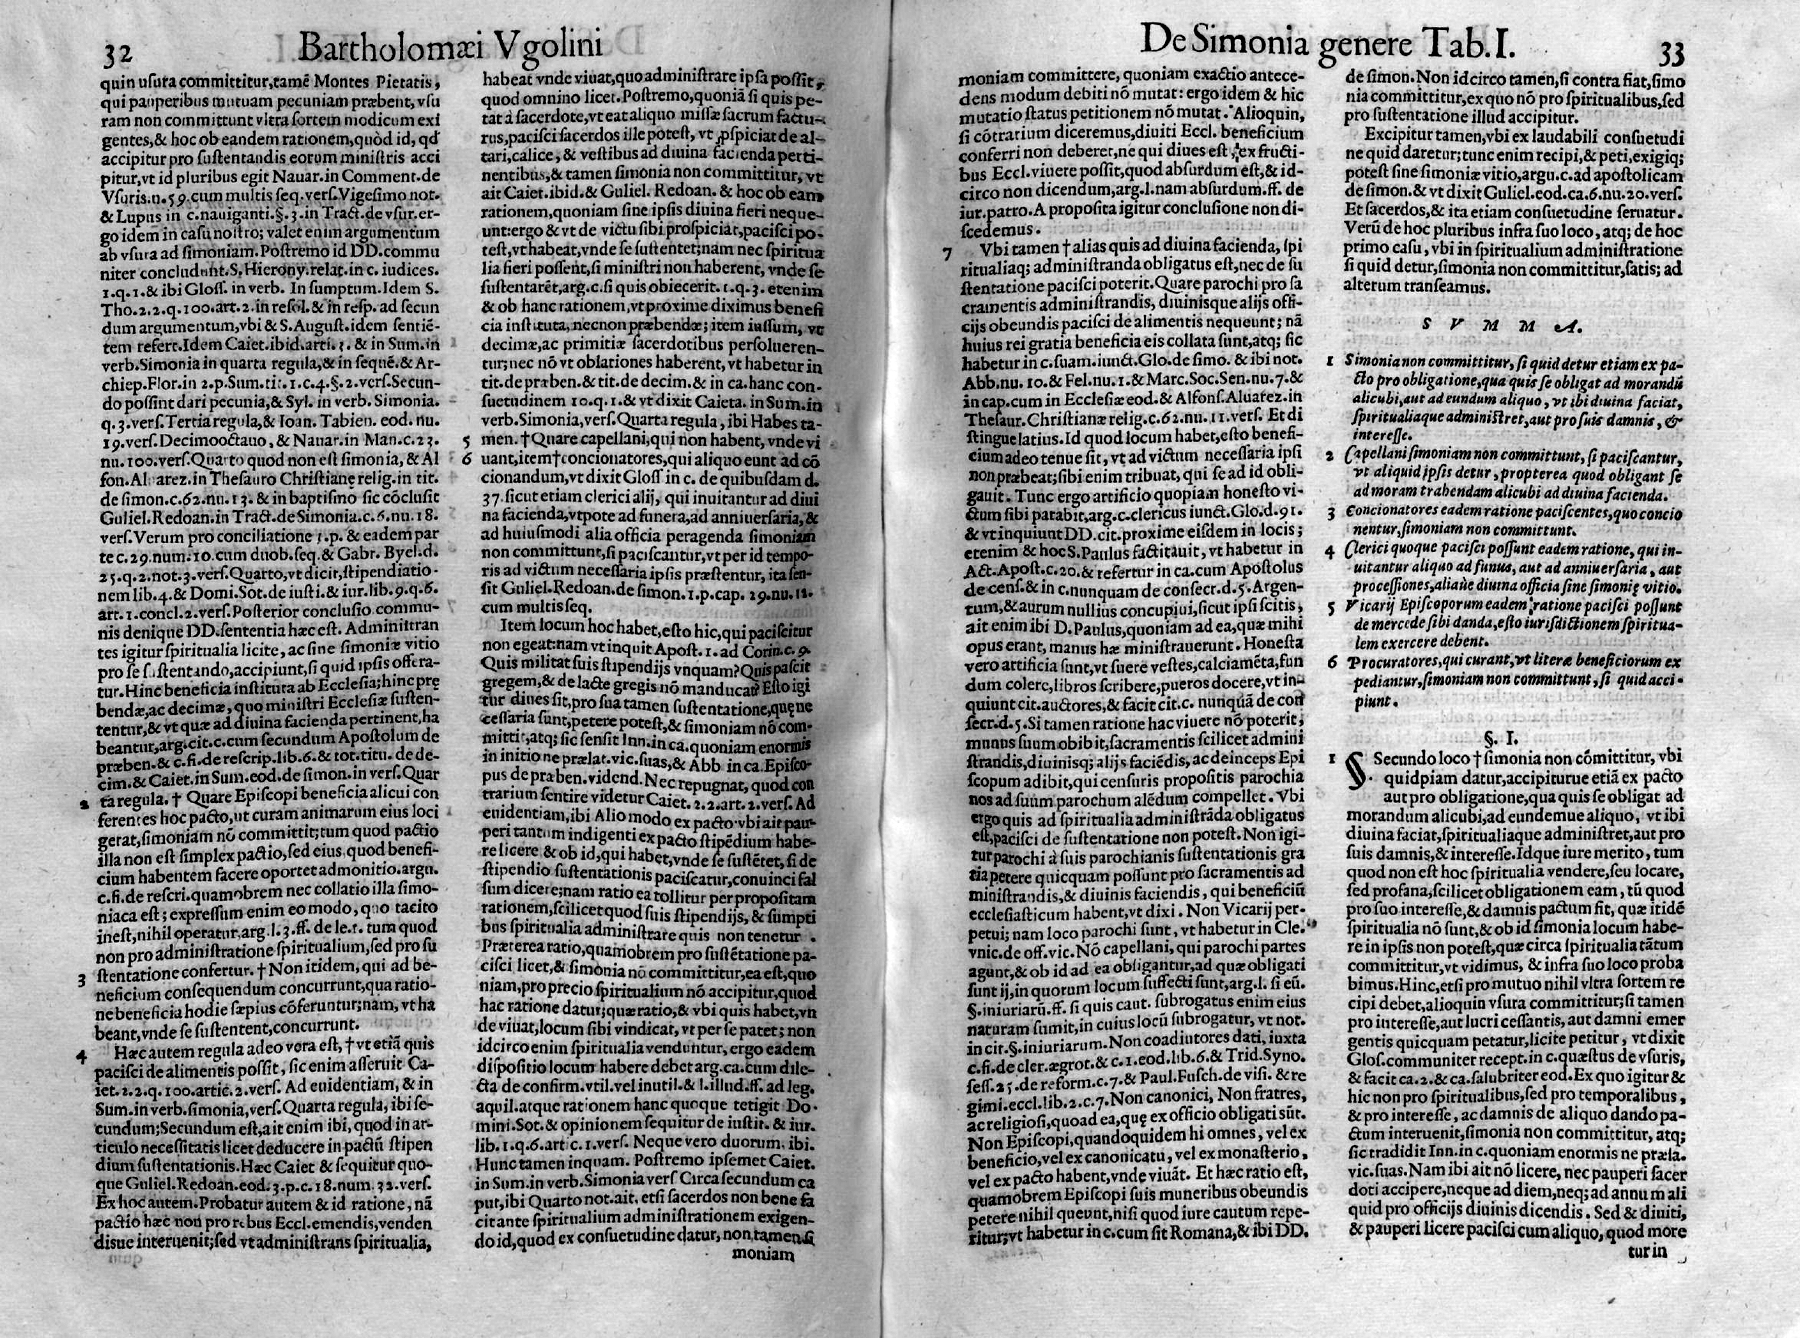 32 Bartholomæi Vgolini
quin usura committitur, tamẽ Montes Pietatis,
qui pauperibus mutuam pecuniam præbent, vsu
ram non committunt vltra sortem modicum exi
gentes, & hoc ob eandem rationem, quòd id, qđ
accipitur pro sustentandis eorum ministris acci
pitur, vt id pluribus egit Nauar. in Comment. de
Vsuris. n. 59. cum multis seq. vers. Vigesimo not.
& Lupus in c. nauiganti. §. 3. in Tract. de vsur. er-
go idem in casu nostro; valet enim argumentum
ab vsura ad simoniam. Postremo id DD. commu
niter concludunt. S. Hierony. relat. in c. iudices.
1. q. 1. & ibi Gloss. in verb. In sumptum. Idem S.
Tho. 2. 2. q. 100. art. 2. in resol. & in resp. ad secun
dum argumentum, vbi & S. August. idem sentiẽ-
tem refert. Idem Caiet. ibid. arti. 3. & in Sum. in
verb. Simonia in quarta regula, & in sequẽ. & Ar-
chiep. Flor. in 2. p. Sum. tit. 1. c. 4. §. 2. vers. Secun-
do possint dari pecunia, & Syl. in verb. Simonia.
q. 3. vers. Tertia regula, & Ioan. Tabien. eod. nu.
19. vers. Decimooctauo, & Nauar. in Man. c. 23.
nu. 100. vers. Quarto quod non est simonia, & Al
fon. Aluarez. in Thesauro Christianę relig. in tit.
de simon. c. 62. nu. 13. & in baptismo sic cõclusit
Guliel. Redoan. in Tract. de Simonia. c. 6. nu. 18.
vers. Verum pro conciliatione 1. p. & eadem par
te c. 29. num. 10. cum duob. seq. & Gabr. Byel. d.
25. q. 2. not. 3. vers. Quarto, vt dicit, stipendiatio-
nem lib. 4. & Domi. Sot. de iusti. & iur. lib. 9. q. 6.
art. 1. concl. 2. vers. Posterior conclusio. commu-
nis denique DD. sententia hæc est. Administran
tes igitur spiritualia licite, ac sine simoniæ vitio
pro se sustentando, accipiunt, si quid ipsis offera-
tur. Hinc beneficia institura ab Ecclesia; hinc prę
bendæ, ac decimæ, quo ministri Ecclesiæ susten-
tentur, & vt quæ ad diuina facienda pertinent, ha
beantur, arg. cit. c. cum secundum Apostolum de
præben. & c. fi. de rescrip. lib. 6. & tot. titu. de de-
cim. & Caiet. in Sum. eod. de simon. in vers. Quar
2 ta regula. † Quare Episcopi beneficia alicui con
ferentes hoc pacto, ut curam animarum eius loci
gerat, simoniam nõ committit; tum quod pactio
illa non est simplex pactio, sed eius quod benefi-
cium habentem facere oportet admonitio. argu.
c. fi. de rescri. quamobrem nec collatio illa simo-
niaca est; expressum enim eo modo, quo tacito
inest, nihil operatur, arg. l. 3. ff. de le. 1. tum quod
non pro administratione spiritualium, sed pro su
3 stentatione confertur. † Non itidem, qui ad be-
neficium consequendum concurrunt, qua ratio-
ne beneficia hodie sæpius cõferuntur; nam, vt ha
beant, vnde se sustentent, concurrunt.
4 Hæc autem regula adeo vera est, † vt etiã quis
pacisci de alimentis possit, sic enim asseruit Ca-
iet. 2. 2. q. 100. artic. 2. vers. Ad euidentiam, & in
Sum. in verb. simonia, vers. Quarta regula, ibi se-
cundum; Secundum est, ait enim ibi, quod in ar-
ticulo necessitatis licet deducere in pactũ stipen
dium sustentationis. Hæc Caiet & sequitur quo-
que Guliel. Redoan. eod. 3. p. c. 18. num. 32. vers.
Ex hoc autem. Probatur autem & id ratione, nã
pactio hæc non pro rebus Eccl. emendis, venden
disue interuenit; sed vt administrans spiritualia,
habeat vnde viuat, quo administrare ipsa possit,
quod omnino licet. Postremo, quoniã si quis pe-
tat à sacerdote, vt eat aliquo missæ sacrum factu-
rus, pacisci sacerdos ille potest, vt ꝓspiciat de al-
tari, calice, & vestibus ad diuina facienda perti-
nentibus, & tamen simonia non committitur, vt
ait Caiet. ibid. & Guliel. Redoan. & hoc ob eam
rationem, quoniam sine ipsis diuina fieri neque-
unt: ergo & vt de victu sibi prospiciat, pacisci po-
test, vt habeat, vnde se sustentet; nam nec spiritua
lia fieri possent, si ministri non haberent, vnde se
sustentarẽt, arg. c. si quis obiecerit. 1. q. 3. etenim
& ob hanc rationem, vt proxime diximus benefi
cia instituta, necnon præbendæ; item iussum, vt
decimæ, ac primitiæ sacerdotibus persolueren-
tur; nec nõ vt oblationes haberent, vt habetur in
tit. de præben. & tit. de decim. & in ca. hanc con-
suetudinem 10. q. 1. & vt dixit Caieta. in Sum. in
verb. Simonia, vers. Quarta regula, ibi Habes ta-
5 men. † Quare capellani, qui non habent, vnde vi
6 uant, item † concionatores, qui aliquo eunt ad cõ
cionandum, vt dixit Gloss in c. de quibusdam d.
37. sicut etiam clerici alij, qui inuitantur ad diui
na facienda, vtpote ad funera, ad anniuersaria, &
ad huiusmodi alia officia peragenda simoniam
non committunt, si paciscantur, vt per id tempo-
ris ad victum necessaria ipsis præstentur, ita sen-
sit Guliel. Redoan. de simon. 1. p. cap. 29. nu. 11.
cum multis seq.
Item locum hoc habet, esto hic, qui paciscitur
non egeat: nam vt inquit Apost. 1. ad Corin. c. 9.
Quis militat suis stipendijs vnquam? Quis pascit
gregem, & de lacte gregis nõ manducat? Esto igi
tur diues sit, pro sua tamen sustentatione, quę ne
cessaria sunt, petere potest, & simoniam nõ com-
mittit, atq; sic sensit Inn. in ca. quoniam enormis
in initio ne prælat. vic. suas, & Abb in ca. Episco-
pus de præben. vidend. Nec repugnat, quod con
trarium sentire videtur Caiet. 2. 2. art. 2. vers. Ad
euidentiam, ibi Alio modo ex pacto vbi ait pau-
peri tantum indigenti ex pacto stipẽdium habe-
re licere & ob id, qui habet, vnde se sustẽtet, si de
stipendio sustentationis paciscatur, conuinci fal
sum dicere; nam ratio ea tollitur per propositam
rationem, scilicet quod suis stipendijs, & sumpti
bus spiritualia administrare quis non tenetur.
Præterea ratio, quamobrem pro sustẽtatione pa-
cisci licet, & simonia nõ committitur, ea est, quo
niam, pro precio spiritualium nõ accipitur, quod
hac ratione datur; quæ ratio, & vbi quis habet, vn
de viuat, locum sibi vindicat, vt per se patet; non
idcirco enim spiritualia venduntur, ergo eadem
dispositio locum habere debet arg. ca. cum dile-
cta de confirm. vtil. vel inutil. & l. illud. ff. ad leg.
aquil. atque rationem hanc quoque tetigit Do-
mini. Sot. & opinionem sequitur de iustit. & iur.
lib. 1. q. 6. artic. 1. vers. Neque vero duorum. ibi.
Hunc tamen inquam. Postremo ipsemet Caiet.
in Sum. in verb. Simonia vers Circa secundum ca
put, ibi Quarto not. ait. etsi sacerdos non bene fa
cit ante spiritualium administrationem exigen-
do id, quod ex consuetudine datur, non tamen si
moniam
De Simonia genere Tab. I. 33
moniam committere, quoniam exactio antece-
dens modum debiti nõ mutat: ergo idem & hic
mutatio status petitionem nõ mutat. Alioquin,
si cõtrarium diceremus, diuiti Eccl. beneficium
conferri non deberet, ne qui diues est, ex fructi-
bus Eccl. viuere possit, quod absurdum est, & id-
circo non dicendum, arg. l. nam absurdum. ff. de
iur. patro. A proposita igitur conclusione non di-
scedemus.
7 Vbi tamen † alias quis ad diuina facienda, spi
ritualiaq; administranda obligatus est, nec de su
stentatione pacisci poterit. Quare parochi pro sa
cramentis administrandis, diuinisque alijs offi-
cijs obeundis pacisci de alimentis nequeunt; nã
huius rei gratia beneficia eis collata sunt, atq; sic
habetur in c. suam. iunct. Glo. de simo. & ibi not.
Abb. nu. 10. & Fel. nu. 1. & Marc. Soc. Sen. nu. 7. &
in cap. cum in Ecclesiæ eod. & Alfons. Aluarez. in
Thesaur. Christianæ relig. c. 62. nu. 11. vers. Et di
stingue latius. Id quod locum habet, esto benefi-
cium adeo tenue sit, vt ad victum necessaria ipsi
non præbeat; sibi enim tribuat, qui se ad id obli-
gauit. Tunc ergo artificio quopiam honesto vi-
ctum sibi parabit, arg. c. clericus iunct. Glo. d. 91.
& vt inquiunt DD. cit. proxime eisdem in locis;
etenim & hoc S. Paulus factitauit, vt habetur in
Act. Apost. c. 20. & refertur in ca. cum Apostolus
de cens. & in c. nunquam de consecr. d. 5. Argen-
tum, & aurum nullius concupiui, sicut ipsi scitis,
ait enim ibi D. Paulus, quoniam ad ea, quæ mihi
opus erant, manus hæ ministrauerunt. Honesta
vero artificia sunt, vt suere vestes, calciamẽta, fun
dum colere, libros scribere, pueros docere, vt in-
quiunt cit. auctores, & facit cit c. nunquã de con
secr. d. 5. Si tamen ratione hac viuere nõ poterit;
munus suum obibit, sacramentis scilicet admini
strandis, diuinisq; alijs faciẽdis, ac deinceps Epi
scopum adibit, qui censuris propositis parochia
nos ad suum parochum alẽdum compellet. Vbi
ergo quis ad spiritualia administrãda obligatus
est, pacisci de sustentatione non potest. Non igi-
tur parochi à suis parochianis sustentationis gra
tia petere quicquam possunt pro sacramentis ad
ministrandis, & diuinis faciendis, qui beneficiũ
ecclesiasticum habent, vt dixi. Non Vicarij per-
petui; nam loco parochi sunt, vt habetur in Cle.
vnic. de off. vic. Nõ capellani, qui parochi partes
agunt, & ob id ad ea obligantur, ad quæ obligati
sunt ij, in quorum locum suffecti sunt, arg. l. si eũ.
§. iniuriarũ. ff. si quis caut. subrogatus enim eius
naturam sumit, in cuius locũ subrogatur, vt not.
in cit. §. iniuriarum. Non coadiutores dati, iuxta
c. fi. de cler. ægrot. & c. 1. eod. lib. 6. & Trid. Syno.
sess. 25. de reform. c. 7. & Paul. Fusch. de visi. & re
gimi. eccl. lib. 2. c. 7. Non canonici, Non fratres,
ac religiosi, quoad ea, quę ex officio obligati sũt.
Non Episcopi, quandoquidem hi omnes, vel ex
beneficio, vel ex canonicatu, vel ex monasterio,
vel ex pacto habent, vnde viuãt. Et hæc ratio est,
quamobrem Episcopi suis muneribus obeundis
petere nihil queunt, nisi quod iure cautum repe-
ritur; vt habetur in c. cum sit Romana, & ibi DD.
de simon. Non idcirco tamen, si contra fiat, simo
nia committitur, ex quo nõ pro spiritualibus, sed
pro sustentatione illud accipitur.
Excipitur tamen, vbi ex laudabili consuetudi
ne quid daretur; tunc enim recipi, & peti, exigiq;
potest sine simoniæ vitio, arg. c. ad apostolicam
de simon. & vt dixit Guliel. eod. ca. 6. nu. 20. vers.
Et sacerdos, & ita etiam consuetudine seruatur.
Verũ de hoc pluribus infra suo loco, atq; de hoc
primo casu, vbi in spiritualium administratione
si quid detur, simonia non committitur, satis; ad
alterum transeamus.
S V M M A.
1 Simonia non committitur, si quid detur etiam ex pa-
cto pro obligatione, qua quis se obligat ad morandũ
alicubi, aut ad eundum aliquo, vt ibi diuina faciat,
spiritualiaque administret, aut pro suis damnis, &
interesse.
2 Capellani simoniam non committunt, si paciscantur,
vt aliquid ipsis detur, propterea quod obligant se
ad moram trahendam alicubi ad diuina facienda.
3 Concionatores eadem ratione paciscentes, quo concio
nentur, simoniam non committunt.
4 Clerici quoque pacisci possunt eadem ratione, qui in-
uitantur aliquo ad funus, aut ad anniuersaria, aut
processiones, aliaùe diuina officia sine simonię vitio.
5 Vicarij Episcoporum eadem ratione pacisci possunt
de mercede sibi danda, esto iurisdictionem spiritua-
lem exercere debent.
6 Procuratores, qui curant, vt literæ beneficiorum ex
pediantur, simoniam non committunt, si quid acci-
piunt.
§. I.
1 Secundo loco † simonia non cõmittitur, vbi
quidpiam datur, accipiturue etiã ex pacto
aut pro obligatione, qua quis se obligat ad
morandum alicubi, ad eundemue aliquo, vt ibi
diuina faciat, spiritualiaque administret, aut pro
suis damnis, & interesse. Idque iure merito, tum
quod non est hoc spiritualia vendere, seu locare,
sed profana, scilicet obligationem eam, tũ quod
pro suo interesse, & damnis pactum sit, quæ itidẽ
spiritualia nõ sunt, & ob id simonia locum habe-
re in ipsis non potest, quæ circa spiritualia tãtum
committitur, vt vidimus, & infra suo loco proba
bimus. Hinc, etsi pro mutuo nihil vltra sortem re
cipi debet, alioquin vsura committitur; si tamen
pro interesse, aut lucri cessantis, aut damni emer
gentis quicquam petatur, licite petitur, vt dixit
Glos. communiter recept. in c. quæstus de vsuris,
& facit ca. 2. & ca. salubriter eod. Ex quo igitur &
hic non pro spiritualibus, sed pro temporalibus,
& pro interesse, ac damnis de aliquo dando pa-
ctum interuenit, simonia non committitur, atq;
sic tradidit Inn. in c. quoniam enormis ne præla.
vic. suas. Nam ibi ait nõ licere, nec pauperi sacer
doti accipere, neque ad diem, neq; ad annum ali
quid pro officijs diuinis dicendis. Sed & diuiti,
& pauperi licere pacisci cum aliquo, quod more
tur in